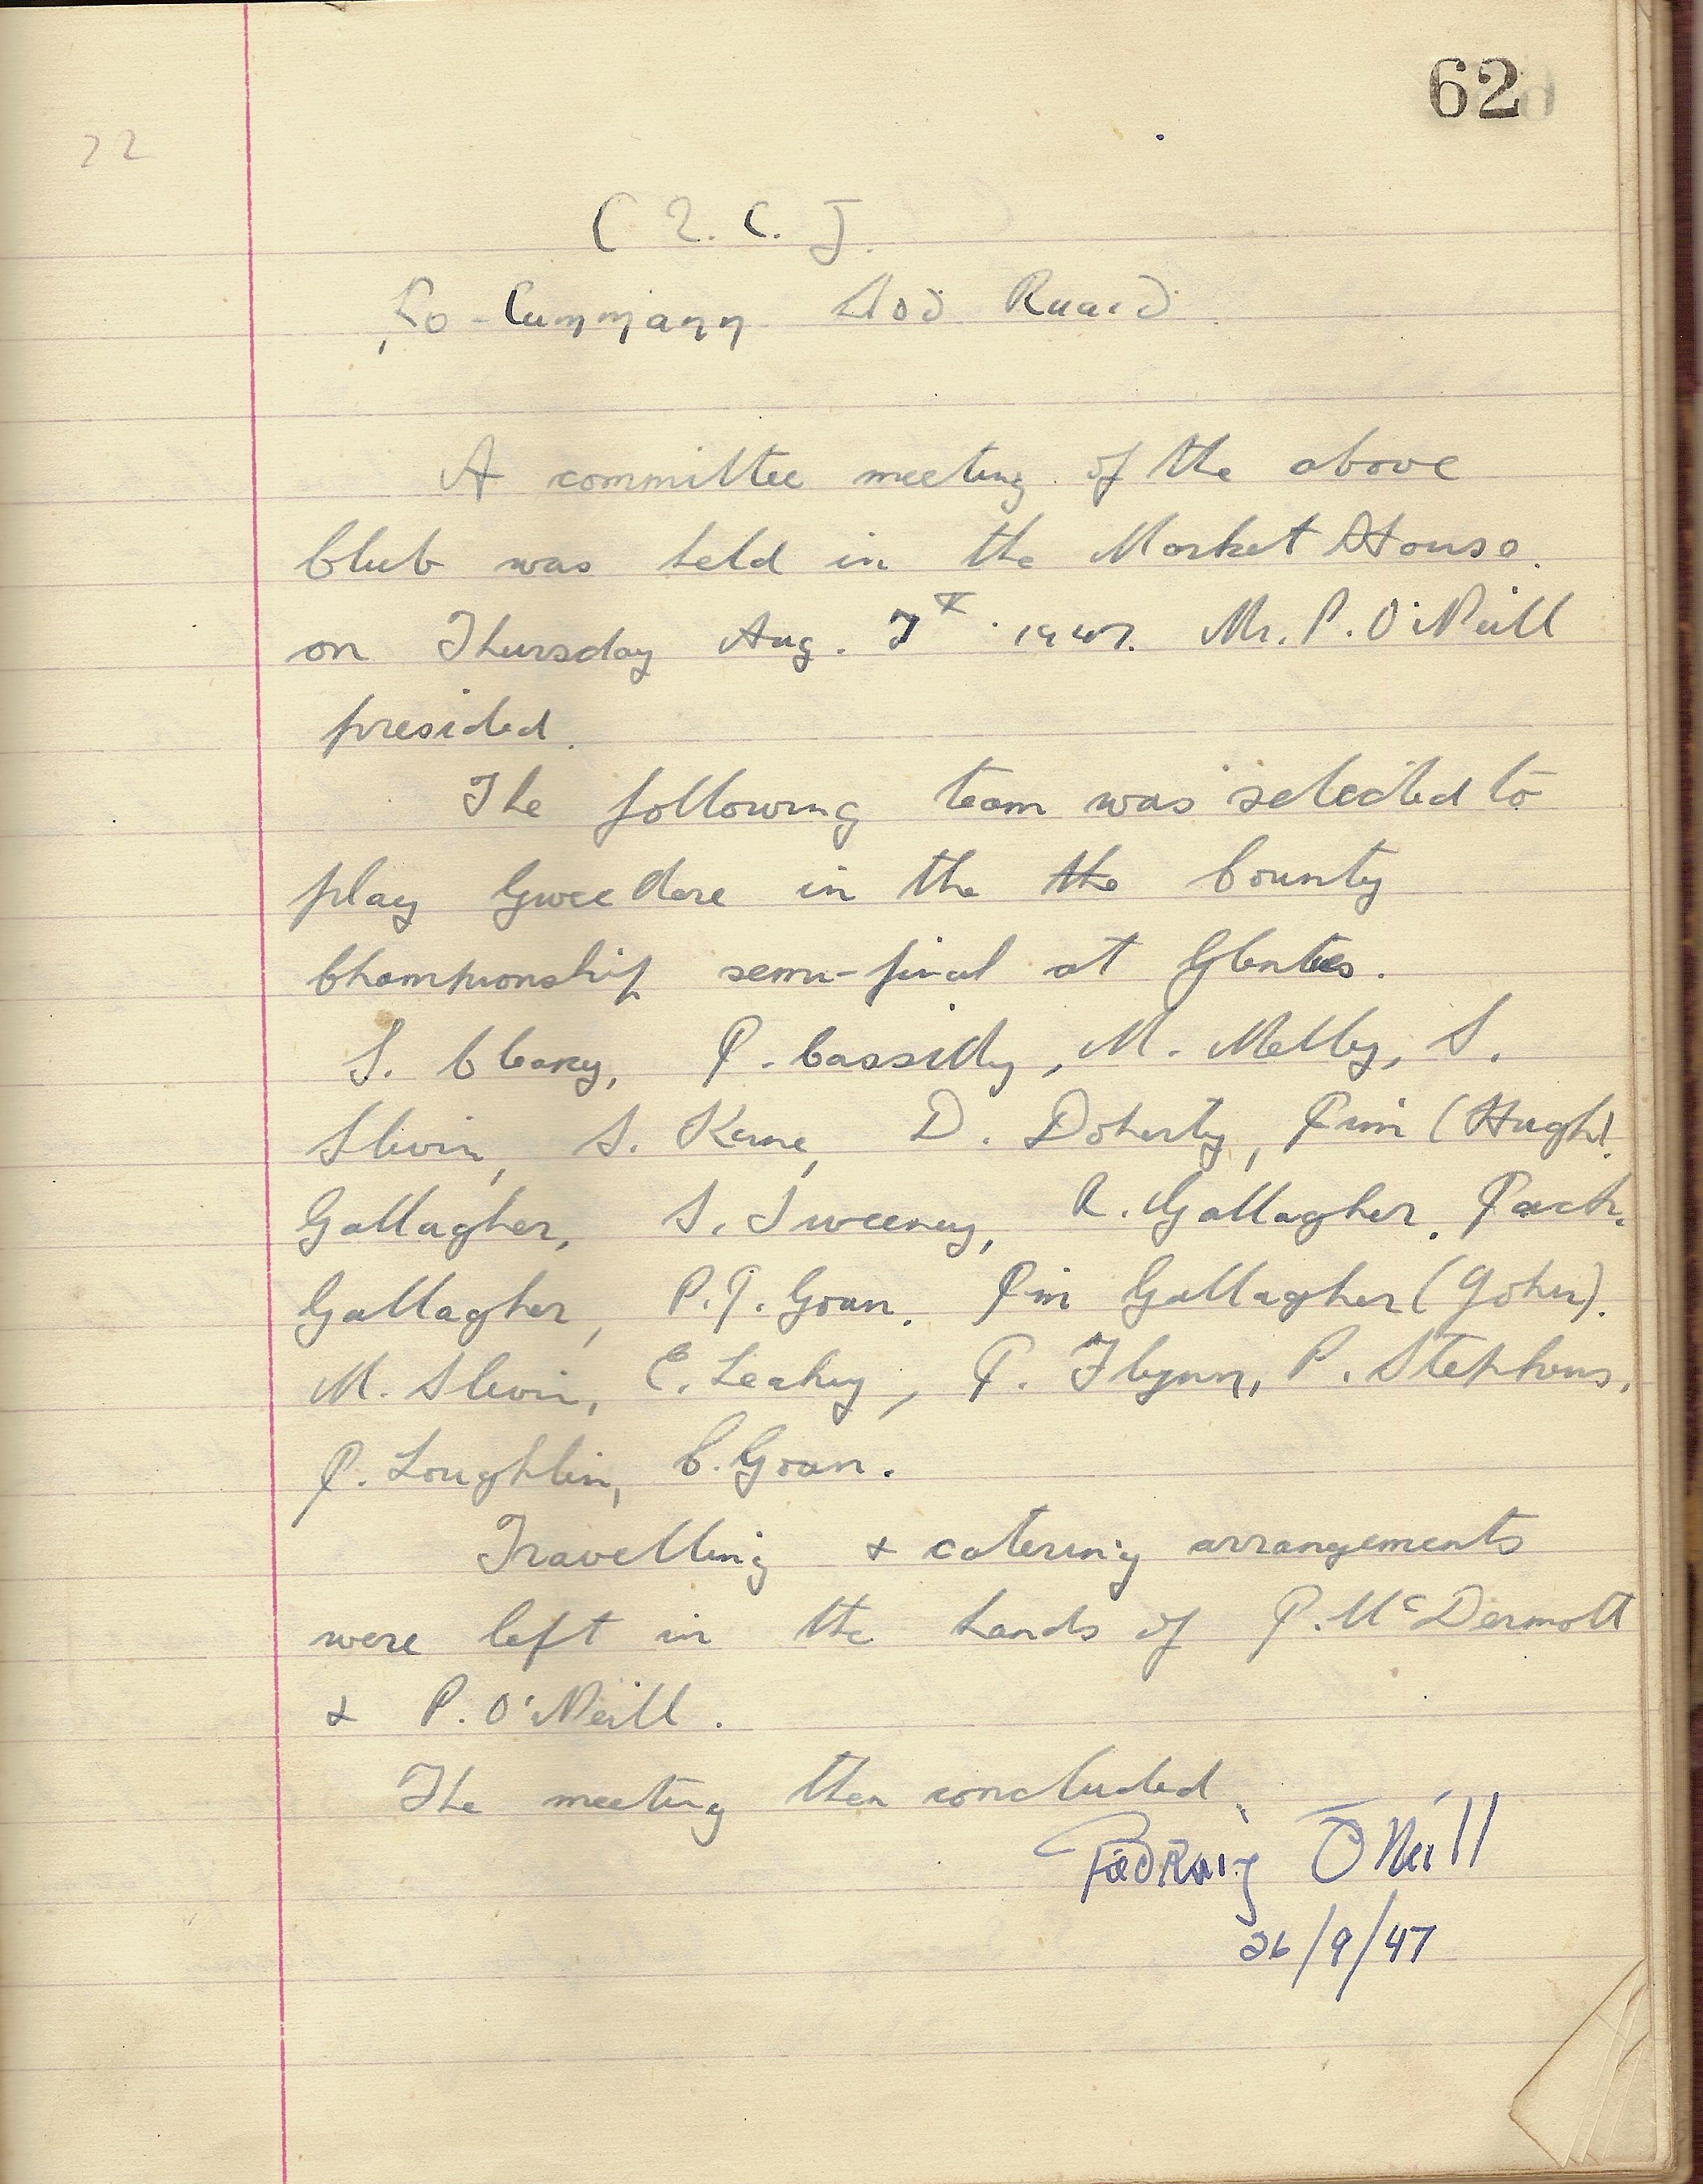 62
22
C L. C. G.
Co-Cummann Aoḋ Ruaiḋ
A committee meeting of the above
Club was held in the Market House.
on Thursday Aug. 7th. 1947. Mr. P. O'Neill
presided.
The following team was selected to
play Gweedore in the the County
Championship semi-final at Glenties.
S. Cleary, P. Cassidy, M. Melly, S.
Slevin, S. Kane, D. Doherty, Pim (Hugh)
Gallagher, S. Sweeney, R. Gallagher. Pack.
Gallagher, P.J. Goan. Pim Gallagher (John).
M. Slevin, E. Leahy, P. Flynn, P. Stephens,
P. Loughlin, C. Goan.
Travelling & catering arrangements
were left in the hands of P. McDermott
& P. O'Neill.
The meeting then concluded.
Pádraig Ó Néill
26/9/47